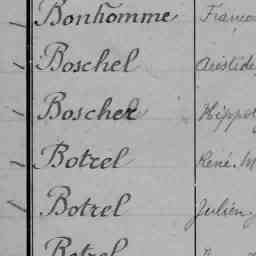 Bonhomme Franço
Boschel Aristide
Boscher Hippol
Botrel René M
Botrel Julien
Botrel